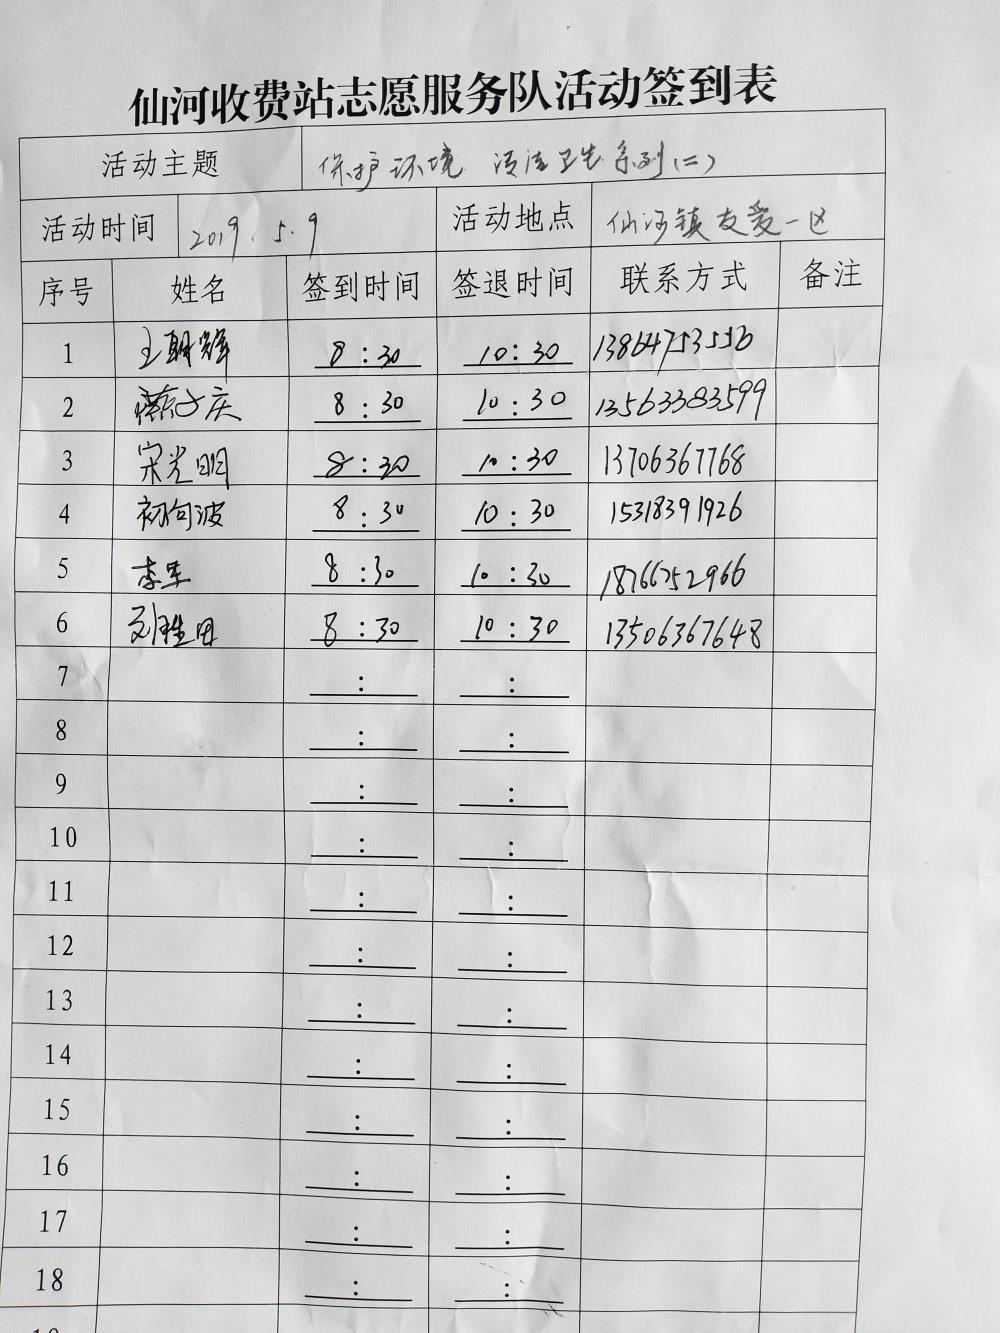 仙河收费站志愿服务队活动签到表
活动主题 保护环境 清洁卫生系列(二)
活动时间 2019.5.9 活动地点 仙河镇友爱一区
序号 姓名 签到时间 签退时间 联系方式 备注
1 王朝辉 8:30 10:30 13864753536
2 8:30 10:30 13563383599
3 宋光明 8:30 10:30 13706367768
4 初向波 8:30 10:30 15318391926
5 李军 8:30 10:30 18766752966
6 刘胜田 8:30 10:30 13506367648
7 : :
8 : :
9 : :
10 : :
11 : :
12 : :
13 : :
14 : :
15 : :
16 : :
17 : :
18 : :